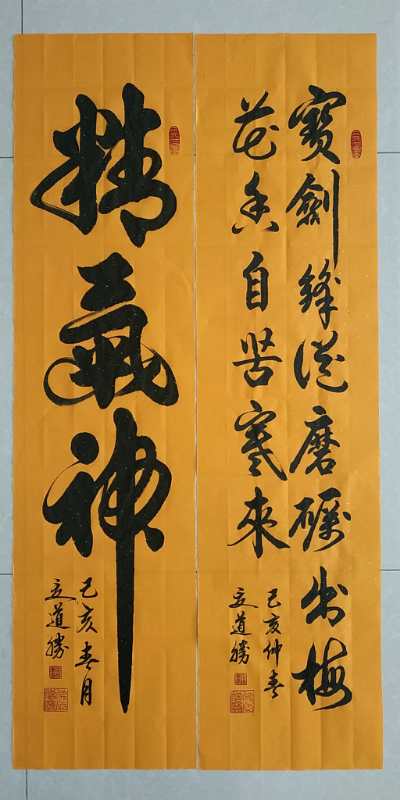 寶劍鋒從磨礪出梅
花香自苦寒來
己亥仲春
立道勝
精氣神
己亥春月
立道勝